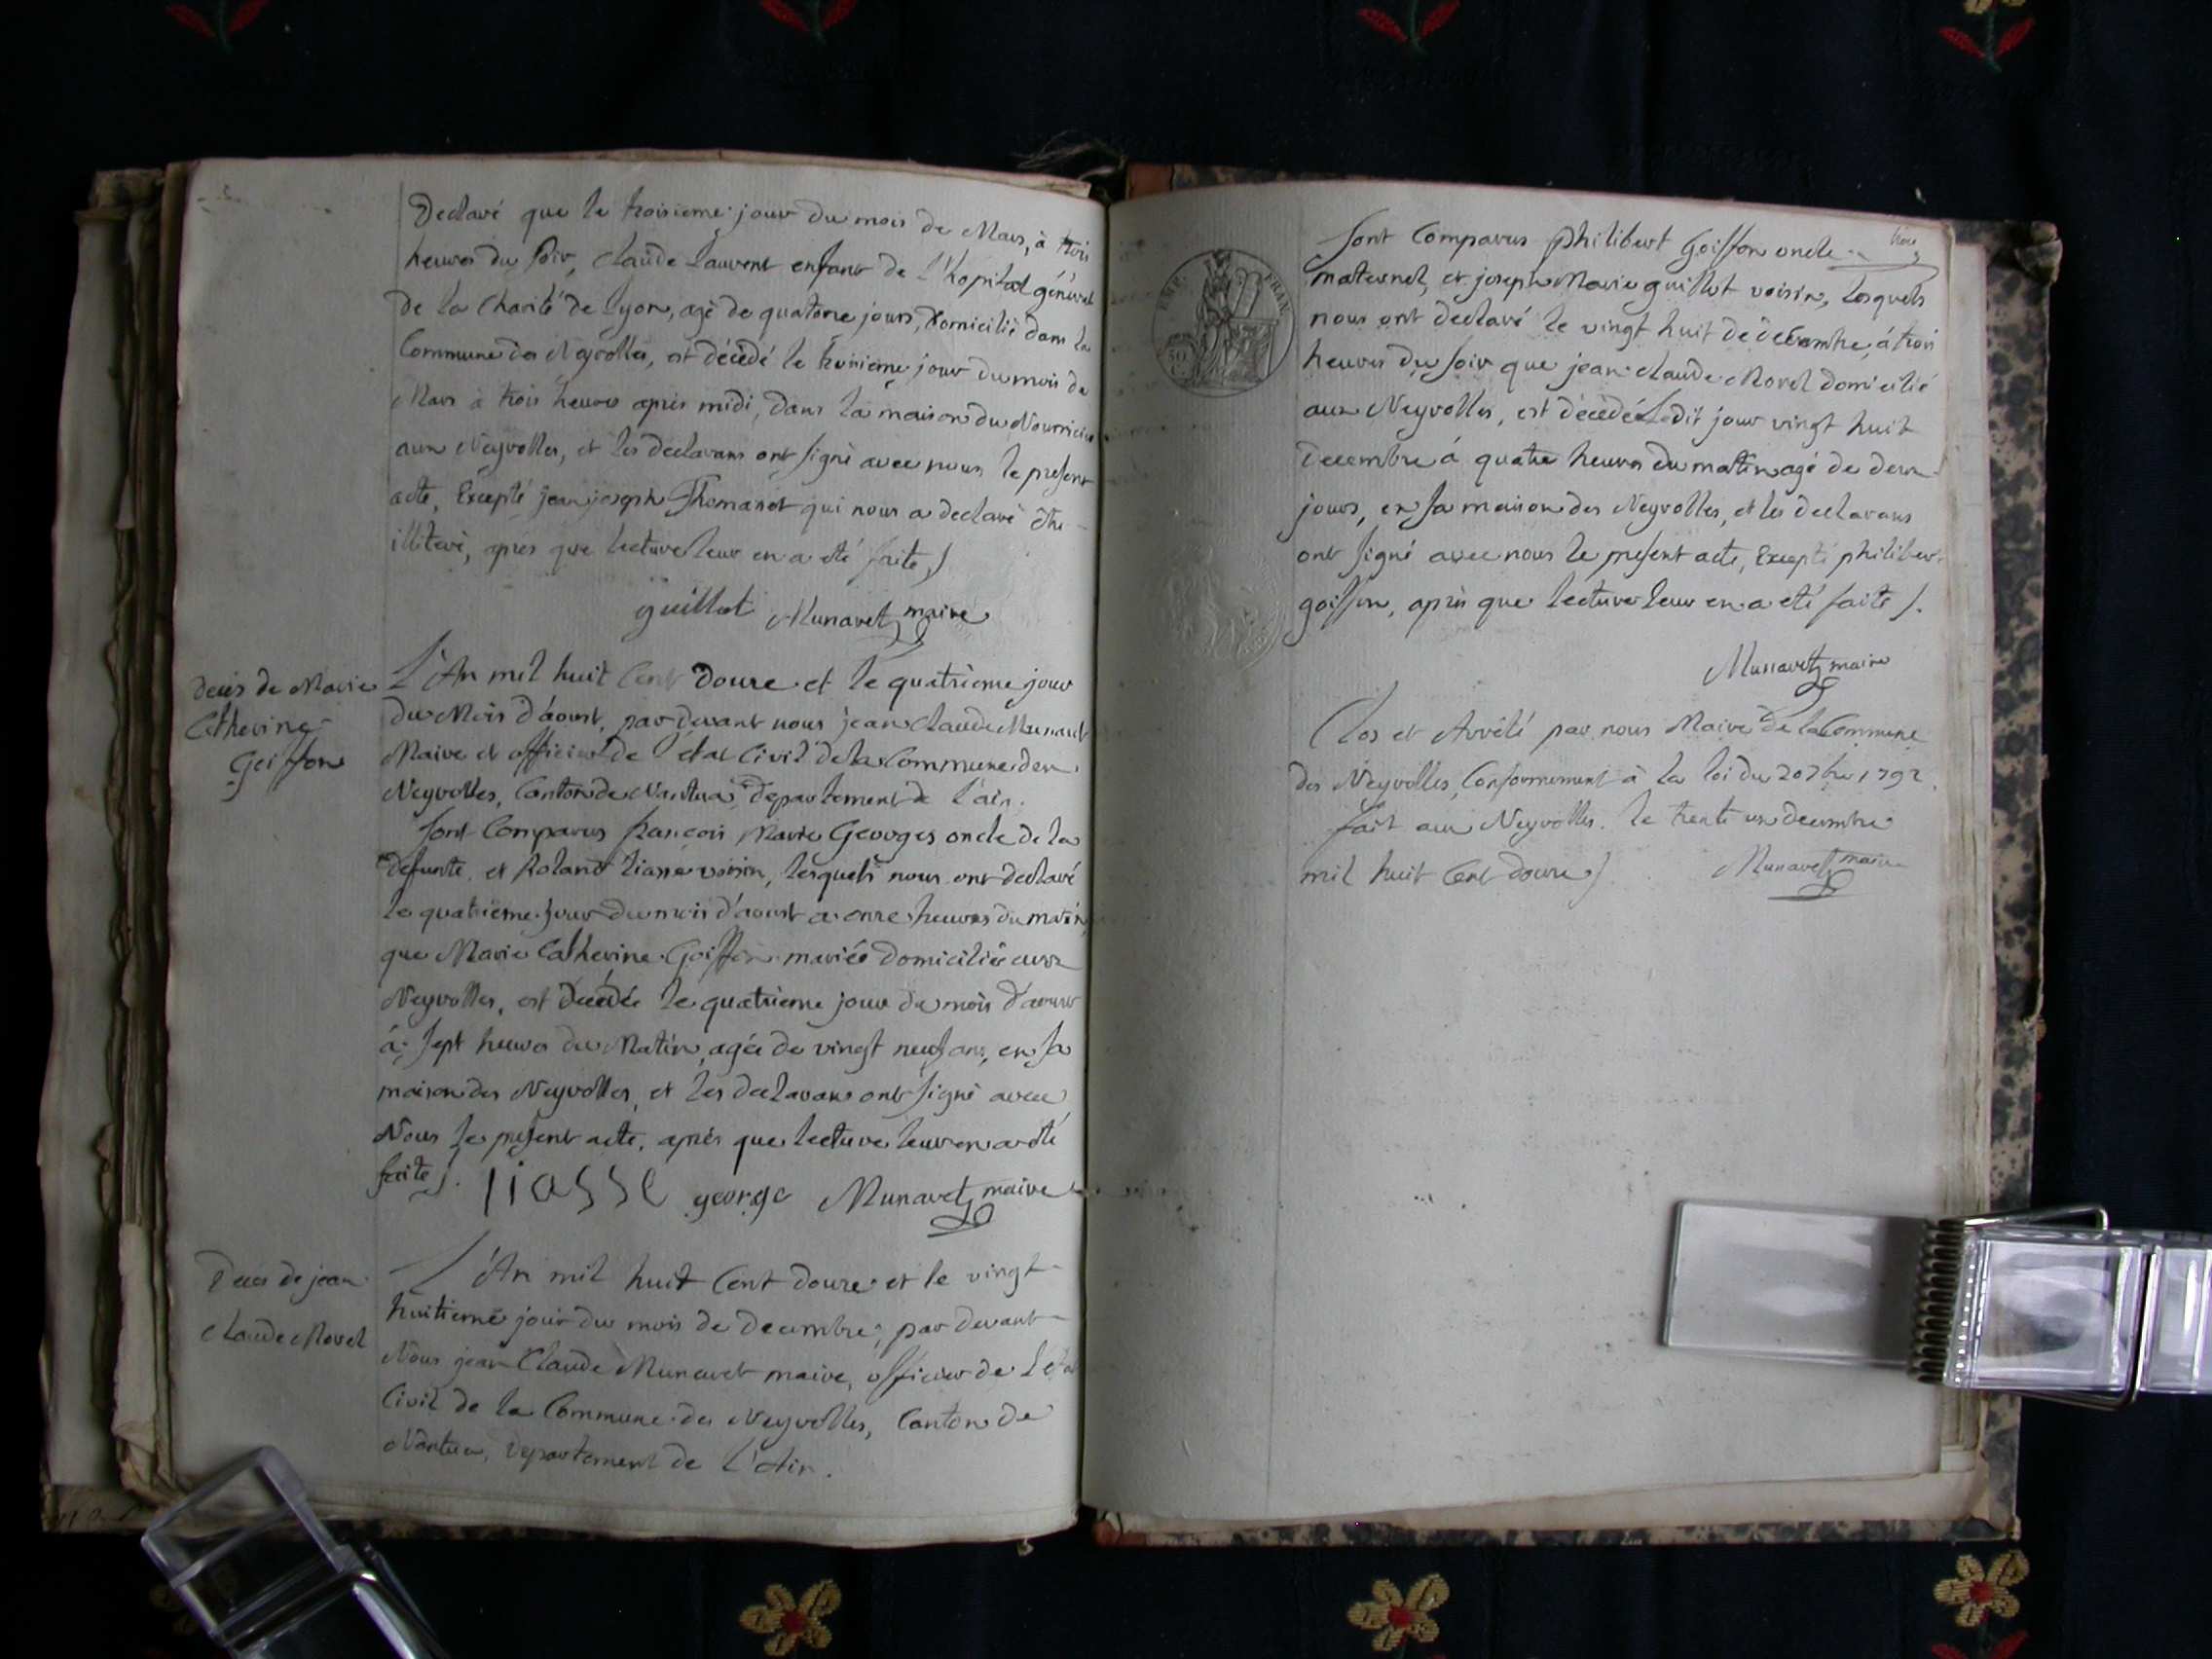 Declaré que le troisieme jour du mois de Mars, à trois
heures du soir, Claude Laurent enfant de l'hopital général
de la Charité de Lyon, agé de quatorze jours, Domicilié dans la
Commune des Neyrolles, est décédé le troisieme jour du mois de
Mars à trois heures après midi, dans la maison du Nourricier
aux Neyrolles, et les declarans ont signé avec nous le present
acte, Excepté jean joseph Thomasset qui nous a declaré être
illiteré, après que lecture leur en a eté faite /
guillot Munaret maire
Decès de Marie
Catherine
Goiffon
L'An mil huit Cent Douze et le quatrieme jour
du Mois d'aoust, par devant nous jean Claude Munaret
Maire et officier de l'état Civil de la Commune des
Neyrolles, Canton de Nantua, Departement de l'ain.
sont Comparus françois Marie Georges oncle de la
defunte, et Roland liasse voisin, lesquels nous ont declaré
le quatrieme jour du mois d'aoust a onze heures du matin,
que Marie Catherine Goiffon mariée Domiciliée aux
Neyrolles, est décédée le quatrieme jour du mois d'aoust
à sept heures du Matin, agée de vingt neuf ans, en sa
maison des Neyrolles, et les declarans ont signé avec
Nous le present acte, après que lecture leur en a eté
faite /. liasse george Munaret maire
Deces de jean
claude Morel
L'An mil huit Cent Douze et le vingt
huitieme jour du mois de Decembre, par devant
Nous jean Claude Munaret maire, officier de l'etat
Civil de la Commune des Neyrolles, Canton de
Nantua, Departement de l'Ain.
EMP. FRAN.
50 C.
sont Comparus philibert Goiffon oncle
maternel, et joseph Marie guillot voisin, lesquels
nous ont declaré le vingt huit de decembre, à trois
heures du soir que jean Claude Morel domicilié
aux Neyrolles, est décédé Ledit jour vingt huit
Decembre à quatre heures du matin agé de deux
jours, en sa maison des Neyrolles, et les declarans
ont signé avec nous le present acte, Excepté philibert
goiffon, après que lecture leur en a eté faite /.
Munaret maire
Clos et Arrêté par nous Maire de la Commune
des Neyrolles, Conformement à la loi du 20 7bre 1792.
fait aux Neyrolles. le trente un decembre
mil huit Cent Douze / Munaret maire